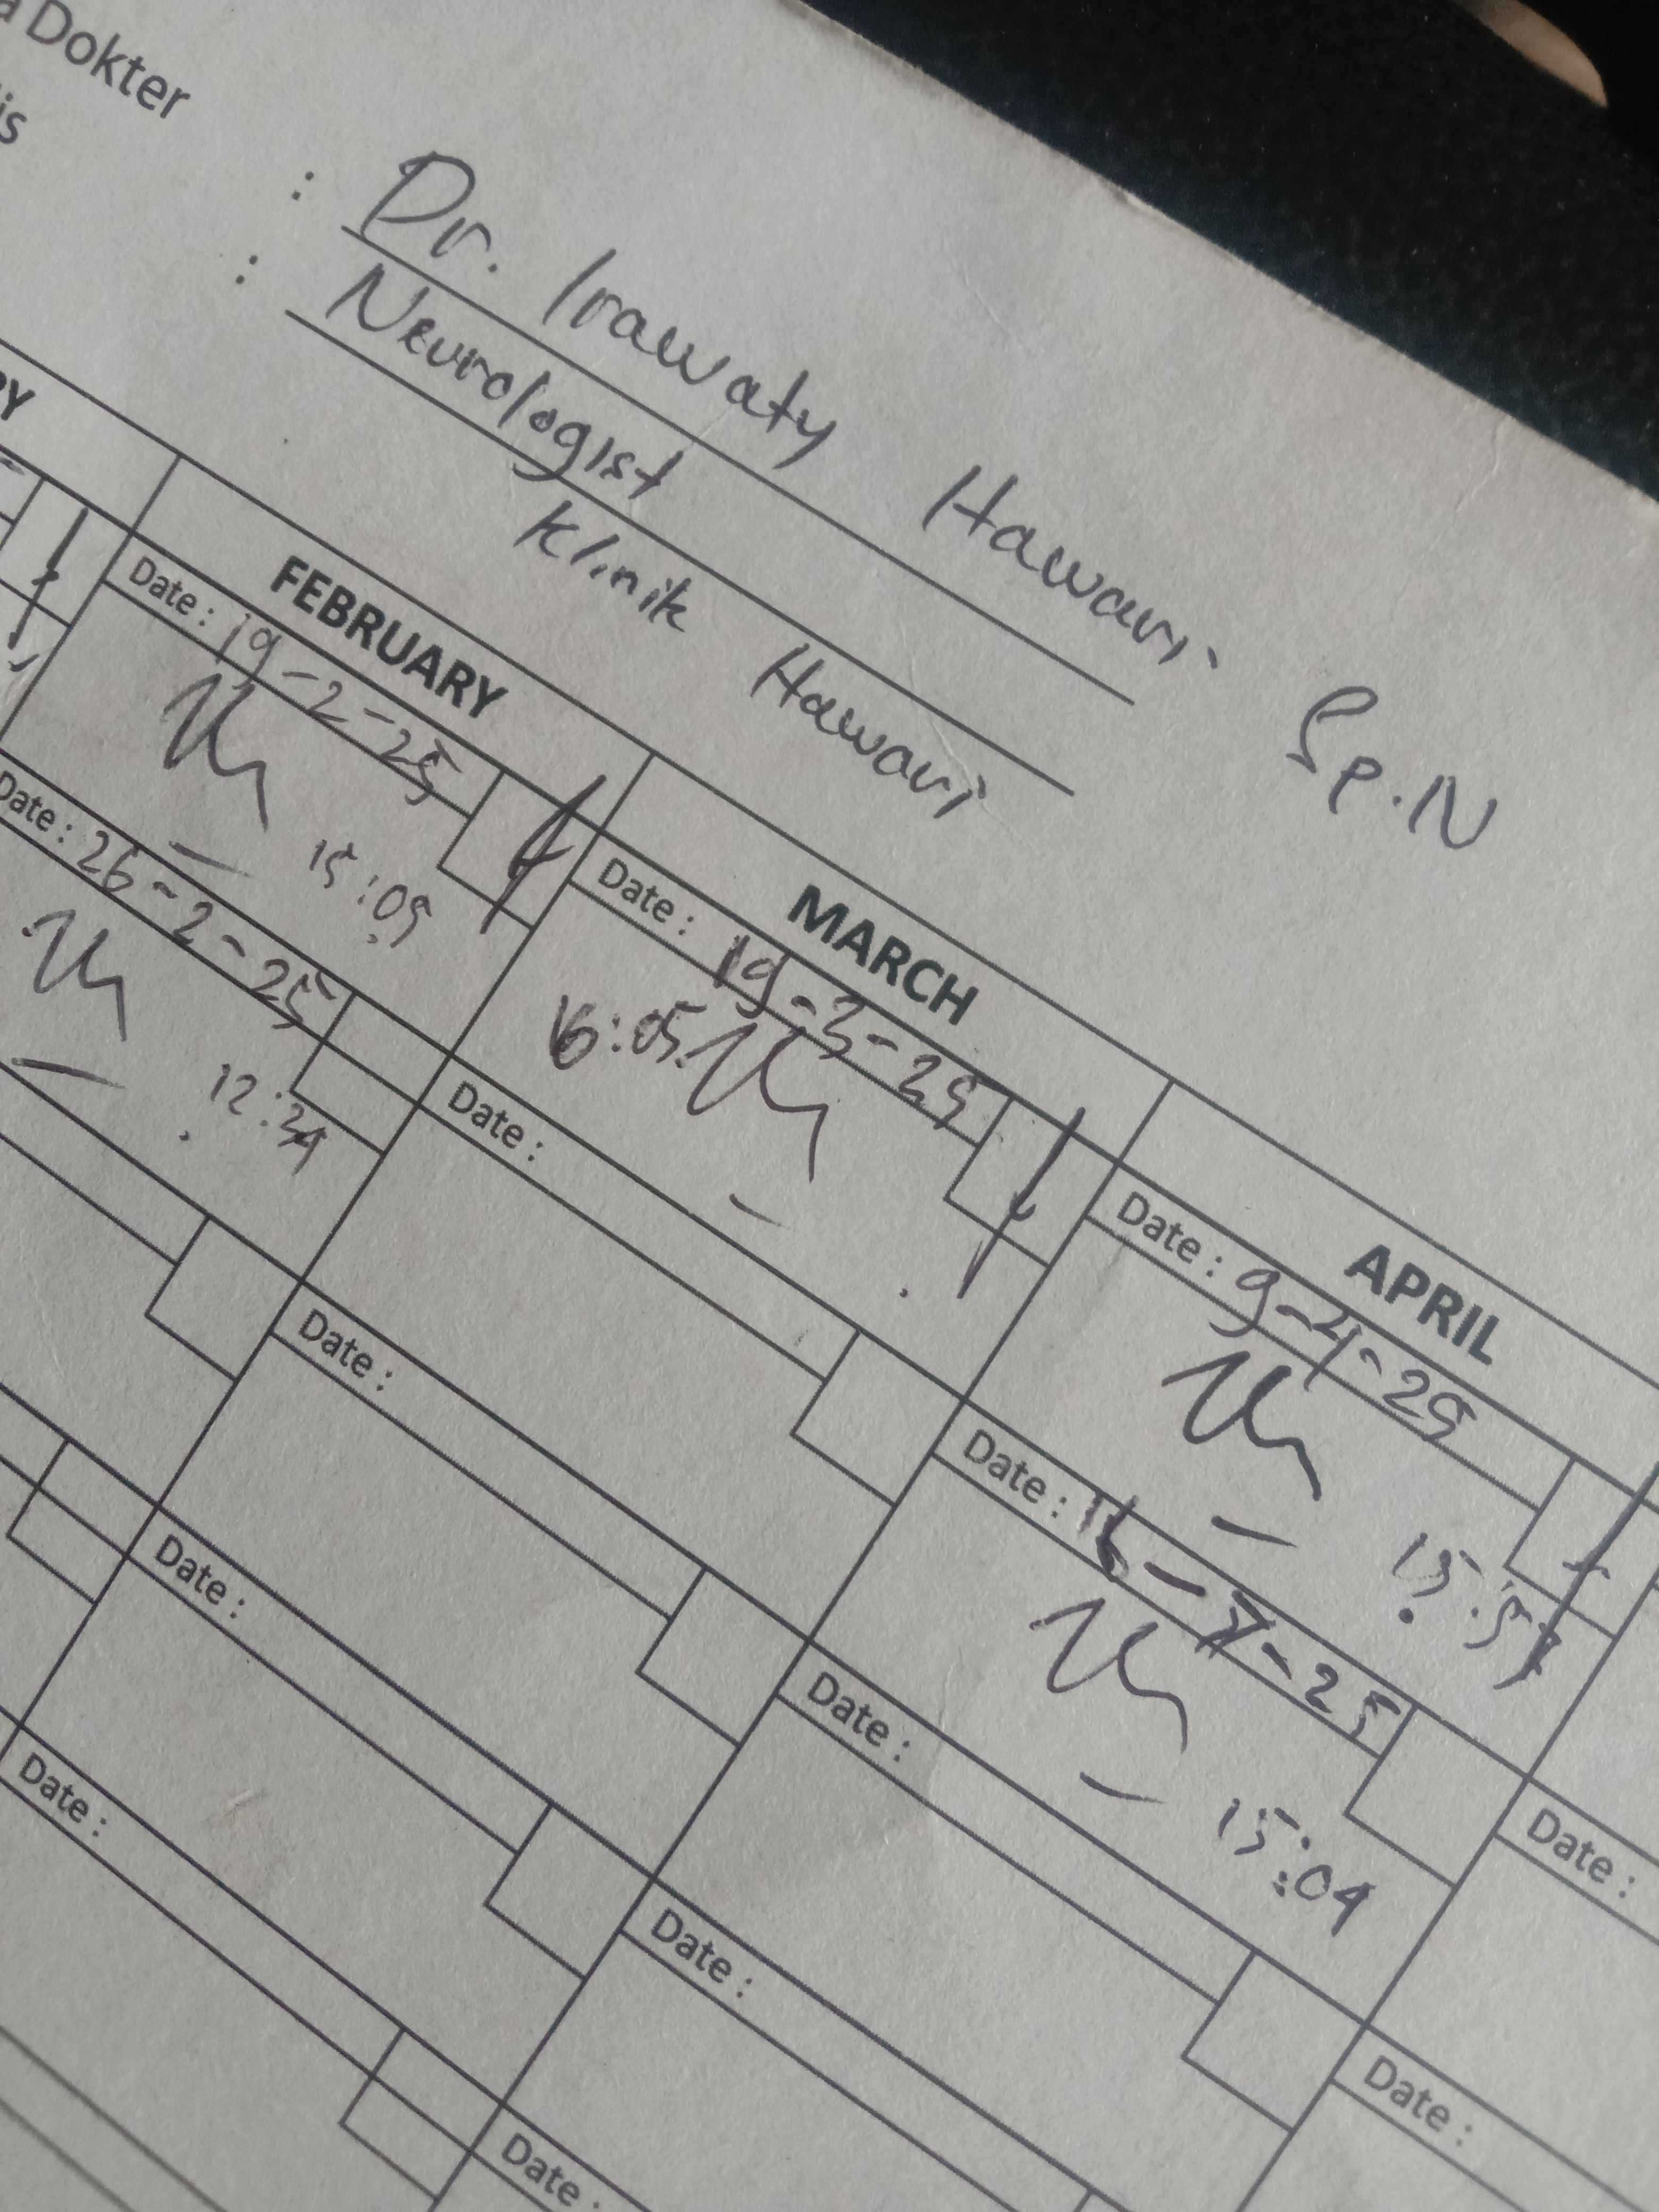 Dokter
: Dr. Irawaty Hawari Sp.N
: Neurologist
Klinik Hawari
FEBRUARY
MARCH
APRIL
Date : 19-2-25
15:09
Date : 26-2-25
12:34
Date : 19-3-25
16:05
Date :
Date : 9-4-25
Date : 16-4-25
15:04
Date :
Date :
Date :
Date :
Date :
Date :
Date :
Date :